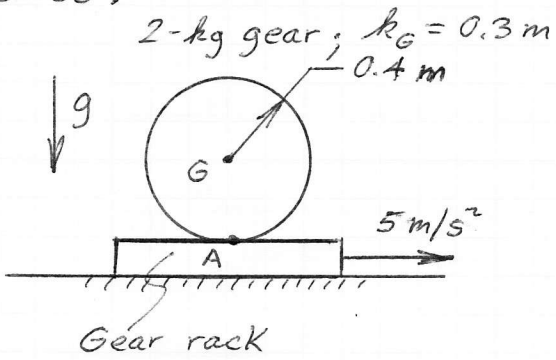 2-kg gear; k_G = 0.3 m
0.4 m
g
G
5 m/s²
A
Gear rack